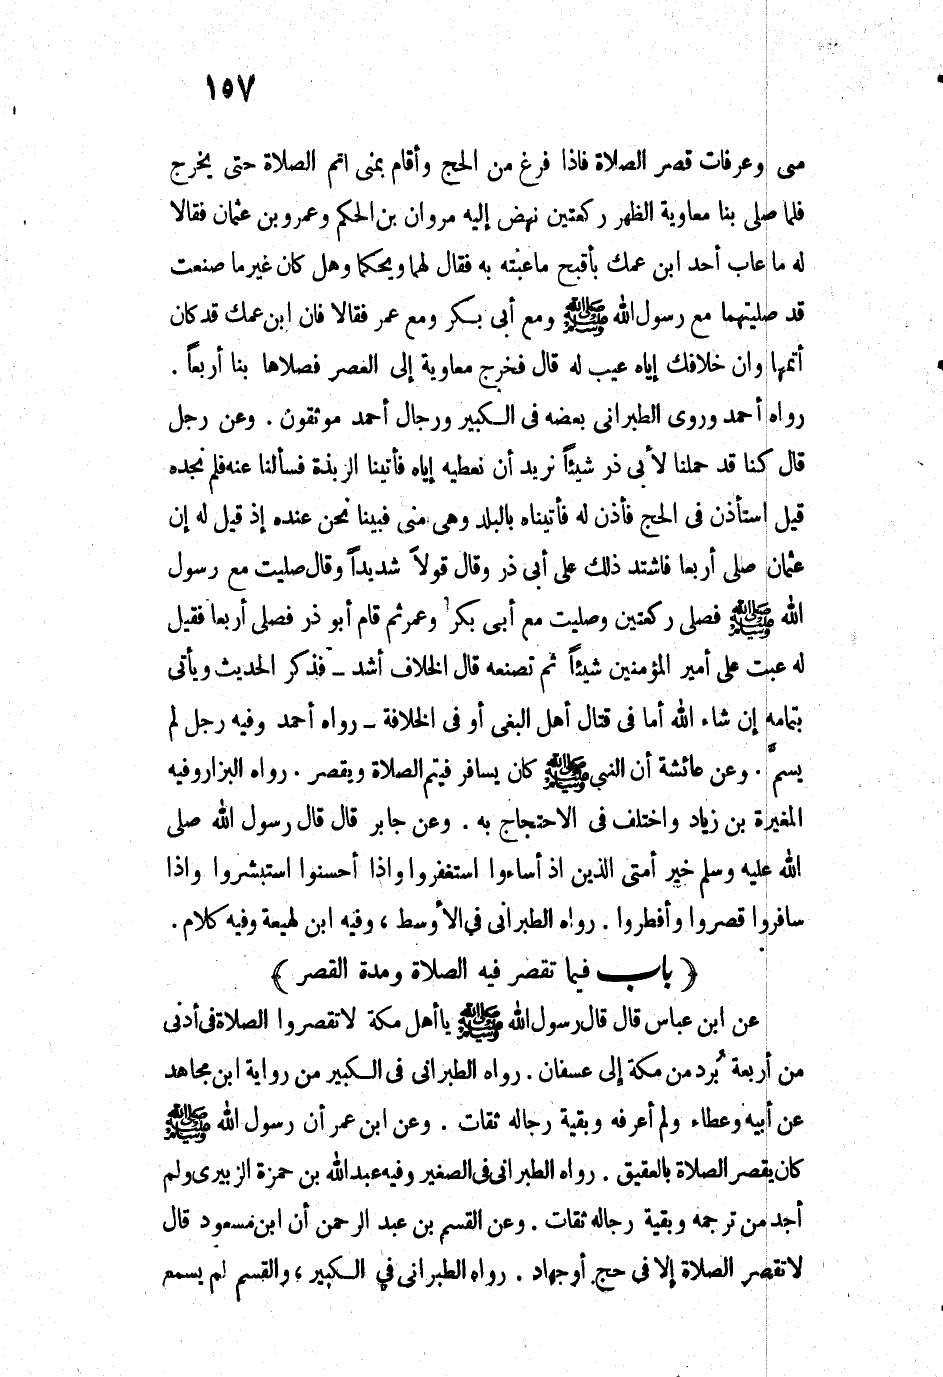 ١٥٧
منى وعرفات قصر الصلاة فاذا فرغ من الحج وأقام بمنى اتم الصلاة حتى يخرج
فلما صلى بنا معاوية الظهر ركعتين نهض إليه مروان بن الحكم وعمرو بن عثمان فقالا
له ما عاب أحد ابن عمك بأقبح ما عبته به فقال لهما ويحكما وهل كان غير ما صنعت
قد صليتهما مع رسول الله ﷺ ومع أبى بكر ومع عمر فقالا فان ابن عمك قد كان
أتمها وان خلافك إياه عيب له قال فخرج معاوية إلى العصر فصلاها بنا أربعاً .
رواه أحمد وروى الطبرانى بعضه فى الكبير ورجال أحمد موثقون . وعن رجل
قال كنا قد حملنا لأبى ذر شيئاً نريد أن نعطيه إياه فأتينا الربذة فسألنا عنه فلم نجده
قيل استأذن فى الحج فأذن له فأتيناه بالبلد وهى منى فبينا نحن عنده إذ قيل له إن
عثمان صلى أربعا فاشتد ذلك على أبى ذر وقال قولاً شديداً وقال صليت مع رسول
الله ﷺ فصلى ركعتين وصليت مع أبى بكر وعمر ثم قام أبو ذر فصلى أربعا فقيل
له عبت على أمير المؤمنين شيئاً ثم تصنعه قال الخلاف أشد ــ فذكر الحديث ويأتى
بتمامه إن شاء الله أما فى قتال أهل البغى أو فى الخلافة ــ رواه أحمد وفيه رجل لم
يسمّ . وعن عائشة أن النبى ﷺ كان يسافر فيتم الصلاة ويقصر . رواه البزار وفيه
المغيرة بن زياد واختلف فى الاحتجاج به . وعن جابر قال قال رسول الله صلى
الله عليه وسلم خير أمتى الذين اذ أساءوا استغفروا واذا أحسنوا استبشروا واذا
سافروا قصروا وأفطروا . رواه الطبرانى في الأوسط ، وفيه ابن لهيعة وفيه كلام .
﴿ باب فيما تقصر فيه الصلاة ومدة القصر ﴾
عن ابن عباس قال قال رسول الله ﷺ يا أهل مكة لا تقصروا الصلاة فى أدنى
من أربعة بُرد من مكة إلى عسفان . رواه الطبرانى فى الكبير من رواية ابن مجاهد
عن أبيه وعطاء ولم أعرفه وبقية رجاله ثقات . وعن ابن عمر أن رسول الله ﷺ
كان يقصر الصلاة بالعقيق . رواه الطبرانى فى الصغير وفيه عبد الله بن حمزة الزبيرى ولم
أجد من ترجمه وبقية رجاله ثقات . وعن القسم بن عبد الرحمن أن ابن مسعود قال
لا تقصر الصلاة إلا فى حج أو جهاد . رواه الطبرانى في الكبير ، والقسم لم يسمع